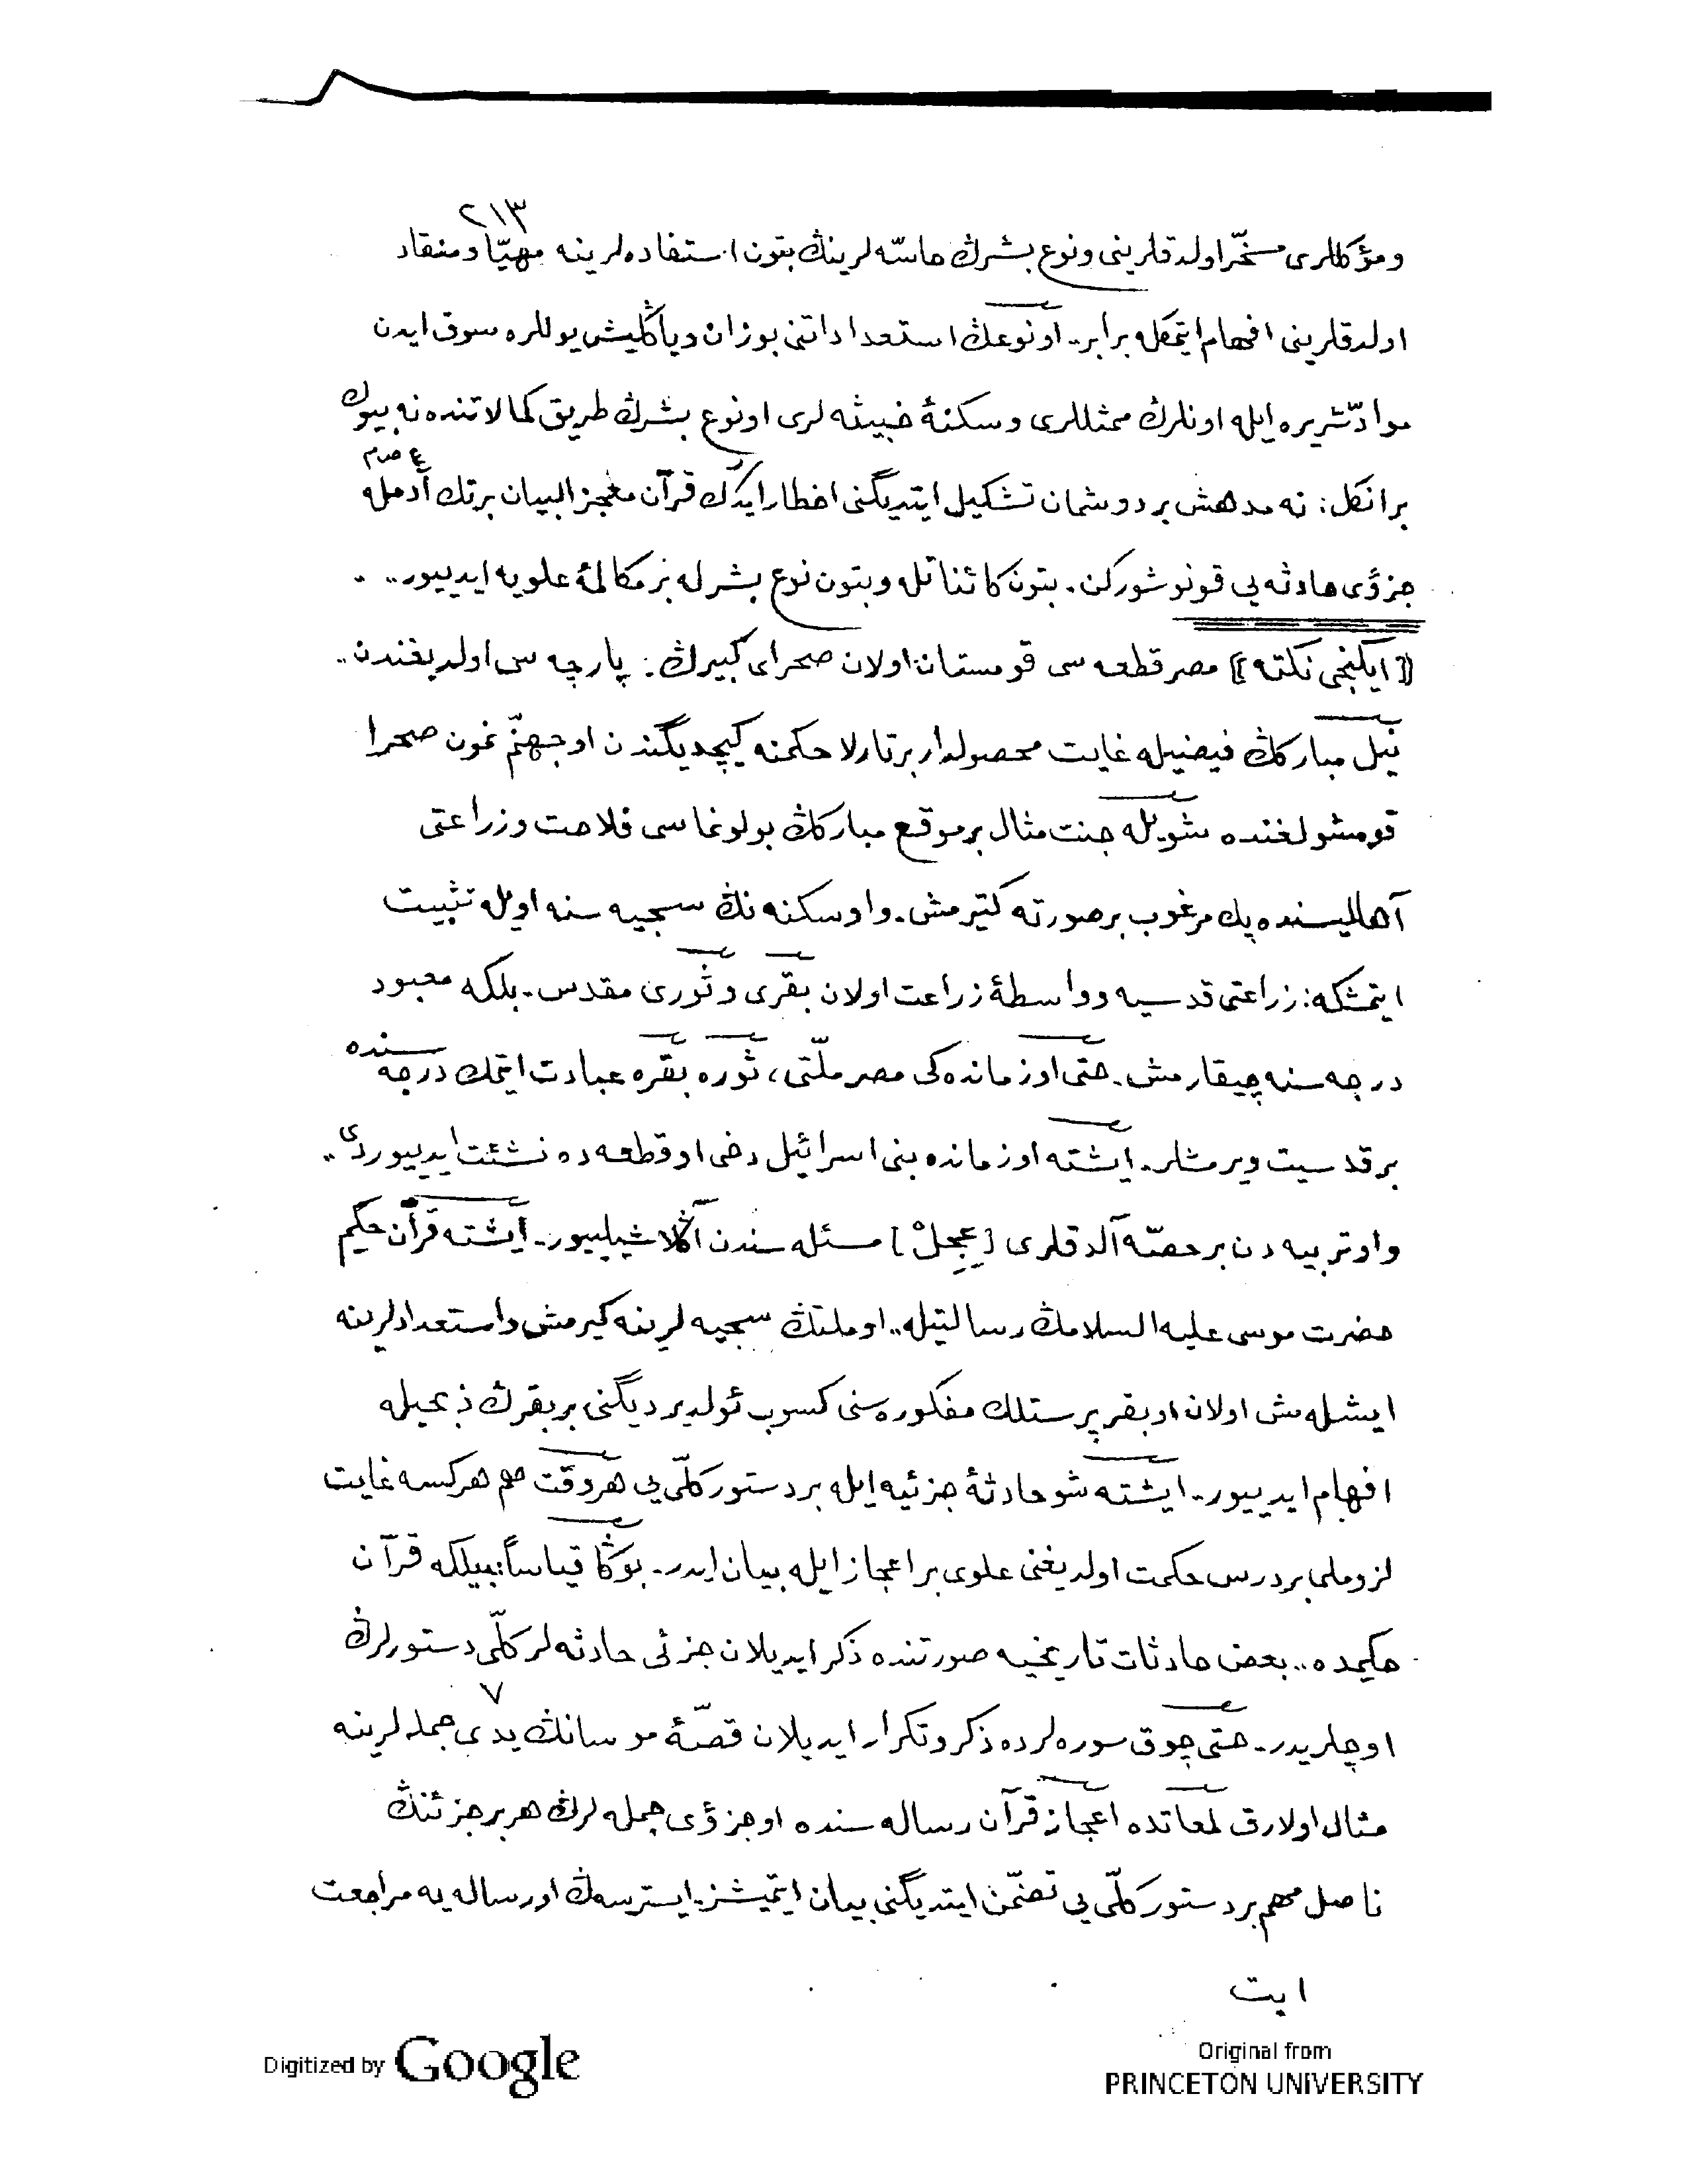 ٢١٣
ومؤكللری مسخّر اولدقلرینی ونوع بشرڭ حاسّه لرینڭ بتون استفاده لرینه مهیّا ومنقاد
اولدقلرینی افهام ایتمكله برابر.. او نوعڭ استعداداتنی بوزان ویاڭلیش یوللره سوق ایدن
موادّ شریره ایله اونلرڭ ممثللری وسكنهٔ خبیثه لری او نوع بشرڭ طریق كمالاتنده نه بیوك
بر انكل؛ نه مدهش بر دوشمان تشكیل ایتدیگنی اخطار ایدرك قرآن معجز البیان بر تك آدمله
جزؤی حادثه یی قونوشوركن. بتون كائناتله وبتون نوع بشرله بر مكالمهٔ علویه ایدییور..
⟦ایكنجی نكته⟧ مصر قطعه سی قومستان اولان صحرای كبیرڭ پارچه سی اولدیغندن..
نیل مباركڭ فیضیله غایت محصولدار بر تارلا حكمنه كیچدیگندن او جهنّم نمون صحرا
قومشولغنده شویله جنت مثال بر موقع مباركڭ بولونماسی فلاحت وزراعتی
آهالیسنده پك مرغوب بر صورته كتیرمش. واو سكنه نڭ سجییه سنه اویله تثبیت
ایتمشكه: زراعتی قدسیه وواسطهٔ زراعت اولان بقری وثوری مقدس. بلكه معبود
درجه سنه چیقارمش. حتی او زمانده كی مصر ملّتی، ثوره بقره عبادت ایتمك درجه سنده
بر قدسیت ویرمشلر. ایشته او زمانده بنی اسرائیل دخی او قطعه ده نشئت ایدییوردی..
واو تربیه دن بر حصّه آلدقلری [عِجِلْ] مسئله سندن آڭلاشیلییور. ایشته قرآن حكیم
حضرت موسی علیه السلامڭ رسالتیله.. او ملتڭ سجیه لرینه كیرمش واستعدادلرینه
ایشله مش اولان او بقرپرستلك مفكوره سنی كسوب ئولدیردیگنی بر بقرڭ ذبحیله
افهام ایدییور. ایشته شو حادثهٔ جزئیه ایله بر دستور كلّی یی هر وقت هم هركسه غایت
لزوملی بر درس حكمت اولدیغنی علوی بر اعجاز ایله بیان ایدر. بوڭا قیاساً بیلكه قرآن
حكیمده.. بعض حادثات تاریخیه صورتنده ذكر ایدیلان جزئی حادثه لر كلّی دستورلرڭ
اوجلریدر. حتی چوق سوره لرده ذكر وتكرار ایدیلان قصّهٔ موسانڭ یدی جمله لرینه
٧
مثال اولارق لمعاتده اعجاز قرآن رساله سنده او جزؤی جمله لرڭ هر بر جزئنڭ
ناصل مهم بر دستور كلّی یی تضمّن ایتدیگنی بیان ایتمیشز. ایسترسه ڭ او رساله یه مراجعت
ایت
Digitized by Google
Original from
PRINCETON UNIVERSITY